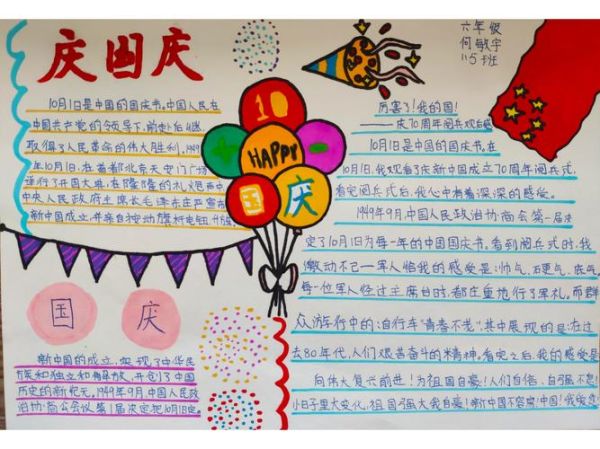 庆国庆
六年级
何敏宇
115班
10月1日是中国的国庆节。中国人民在
中国共产党的领导下,前赴后继,
取得了人民革命的伟大胜利,1949
年10月1日,在首都北京天安门广场
举行了开国大典,在隆隆的礼炮声中
中央人民政府主席长毛泽东庄严宣布
新中国成立,并亲自按动
10
HAPPY
国
庆
国
庆
新中国的成立,实现了中华民
族和独立和解放,开创了中国
历史的新纪元。1949年9月,中国人民政
治协商会议第1届决定把10月1日定。
厉害了!我的国!
——庆70周年阅兵观后感
10月1日是中国的国庆节,在
10月1日,我观看了庆新中国成立70周年阅兵式,
看完阅兵式后,我心中有着深深的感受。
1949年9月,中国人民政治协商会第一届决
定了10月1日为每一年的中国国庆节。看到阅兵式时,我
激动不已一军人给我的感受是:帅气、硬气、底气
每一位军人经过主席台时,都庄重地行了军礼。而群
众游行中的:自行车"青春不老",其中展现的是:在过
去80年代,人们艰苦奋斗的精神。看完之后,我的感受是
向伟大复兴前进!为祖国自豪!人们自信,自强不息!
小日子里大变化,祖国强大我自豪!新中国不容易!中国!我爱您!